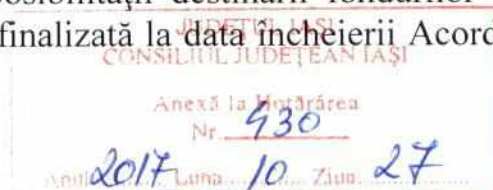 destinării fondurilor
finalizată la data încheierii Acord
JUDEȚUL IAȘI
CONSILIUL JUDEȚEAN IAȘI
Anexă la Hotărârea
Nr. 430
Anul 2017 Luna 10 Ziua 27